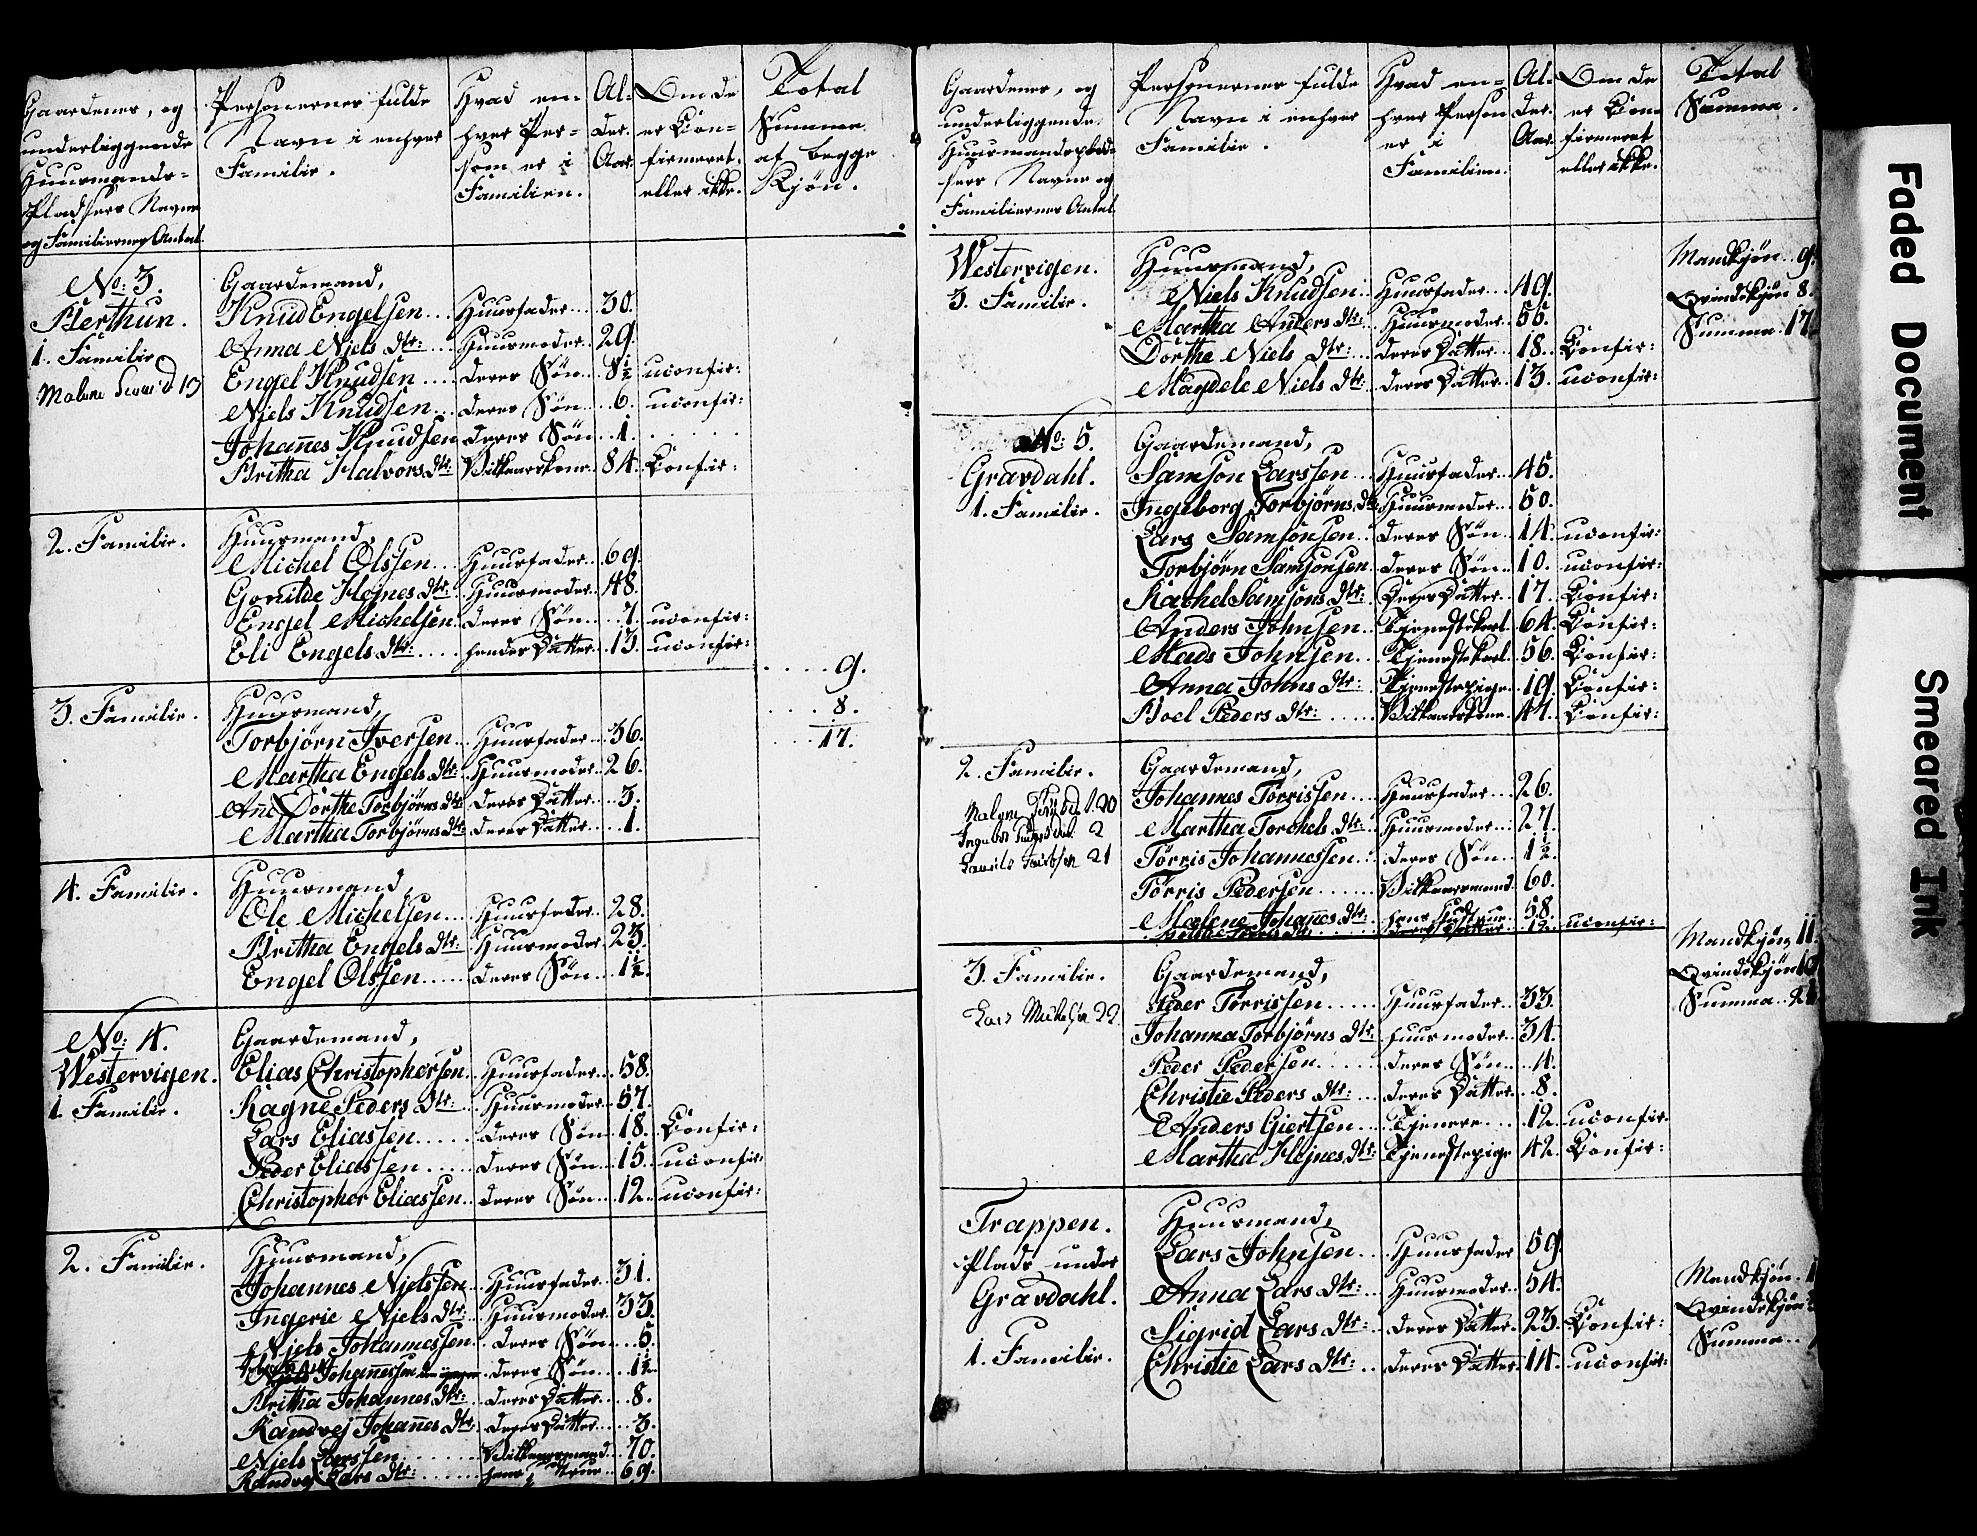 Gaardenes, og
underliggende
Huusmands-
Pladsers Navne
og Familiernes Antal
Personernes fulde
Navn i enhver
Familie.
Hvad en-
hver Per-
son er i
Familien.
Al-
der.
Aar.
Om de
er Con-
firmeret,
eller ikke.
Total
Summa
af begge
Kjøn.
No: 3.
Berthun.
1. Familie
Gaardemand,
Knud Engelsen... Huusfader... 30.
Anna Niels Dtr:... Huusmoder.. 29.
Engel Knudsen..... deres Søn... 8½ uconfir:
Niels Knudsen... deres Søn... 6. uconfir:
Johañes Knudsen deres Søn... 1.
Britha Halvors Dtr: Vilkaarskone.. 84. Confir:
2. Familie.
Huusmand,
Michel Olssen... Huusfader... 69.
Gonilde Hejnes Dtr: Huusmoder.. 48.
Engel Michelsen. deres Søn... 7. uconfir:
Eli Engels Dtr:.... hendes Datter.. 13. uconfir:
.... 9.
.... 8.
... 17.
3. Familie.
Huusmand,
Torbjørn Iversen... Huusfader... 36.
Martha Engels Dtr: Huusmoder.. 26.
Añe Dorthe Torbjørns Dtr: deres Datter... 3.
Martha Torbjørns Dtr: deres Datter... 1.
4. Familie.
Huusmand
Ole Michelsen.... Huusfader.. 28.
Britha Engels Dtr:.. Huusmoder 23.
Engel Olssen...... deres Søn... 1½.
No: 4.
Westervigen.
1. Familie.
Gaardemand,
Elias Christophersen. Huusfader... 58.
Ragne Peders Dtr:... Huusmoder.. 57.
Lars Eliassen...... deres Søn... 18. Confir:
Peder Eliassen..... deres Søn... 15. uconfir:
Christopher Eliassen. deres Søn... 12. uconfir:
2. Familie.
Huusmand,
Johannes Nielssen Huusfader.. 31.
Ingerie Niels Dtr: Huusmoder. 33.
Niels Johannessen. deres Søn... 5.
Johañessen deres Søn... 1½
Britha Johannes Dtr:... deres Datter.... 8.
Randvej Johañes Dtr. deres Datter.... 3.
Niels Larssen...... Vilkaarsmand... 70.
Randvej Lars Dtr:..... hans Kone... 69.
Gaardenes, og
underliggende
Huusmandsplad-
sers Navne og
Familiernes Antal
Personernes fulde
Navn i enhver
Familie.
Hvad en-
hver Person
er i
Familien.
Al-
der.
Aar.
Om de
er Con-
firmeret
eller ikke.
Total
Summa.
Westervigen.
3. Familie.
Huusmand,
Niels Knudsen... Huusfader... 49.
Martha Anders Dtr:.. Huusmoder.. 56.
Dorthe Niels Dtr:... deres Datter... 18. Confir:
Magdele Niels Dtr: deres Datter... 13. uconfir:
Mandkjøn.. 9.
Qvindekjøn 8.
Summa. 17.
No: 5.
Gravdahl.
1. Familie.
Gaardemand,
Samson Larssen... Huusfader... 45.
Ingeborg Torbjørns Dtr: Huusmoder... 50.
Lars Samsonsen... deres Søn... 14. uconfir:
Torbjørn Samsonsen. deres Søn... 10. uconfir:
Rachel Samsons Dtr: deres Datter... 17. Confir:
Anders Johnsen... Tjenestekarl. 64. Confir:
Mads Johnsen... Tjenestekarl. 56. Confir:
Anna Johns Dtr: Tjenestepige.. 19. Confir:
Boel Peders Dtr:...... Vilkaarskone... 47. Confir:
2. Familie.
Gaardemand,
Johannes Tørrissen... Huusfader... 26.
Martha Torchels Dtr: Huusmoder... 27.
Tørris Johannessen. deres Søn... 1½.
Tørris Pedersen....... Vilkaarsmand. 60.
Malene Johañes Dtr. hans Hustrue.. 58.
deres Datter.. 12. uconfir:
3. Familie.
Lars Mickelsen 22
Gaardemand,
Peder Tørrissen....... Huusfader... 33.
Johanna Torbjørns Dtr: Huusmoder... 34.
Peder Pedersen..... deres Søn... 4.
Christie Peders Dtr:... deres Datter... 8.
Anders Giertsen.... Tjenere.... 12. uconfir.
Martha Hejnes Dtr: Tjenestepige 42. Confir:
Mandkjøn 11.
Qvindekjøn 10
Summa.. 21
Trappen.
Plads under
Gravdahl.
1. Familie.
Huusmand,
Lars Johnsen.... Huusfader 59.
Anna Lars Dtr:... Huusmoder... 54.
Sigrid Lars Dtr:... deres Datter. 23. Confir:
Christie Lars Dtr:.. deres Datter. 14. uconfir:
Mandkjøn. 1
Qvindekjøn 3
Summa...
Faded Document
Smeared Ink